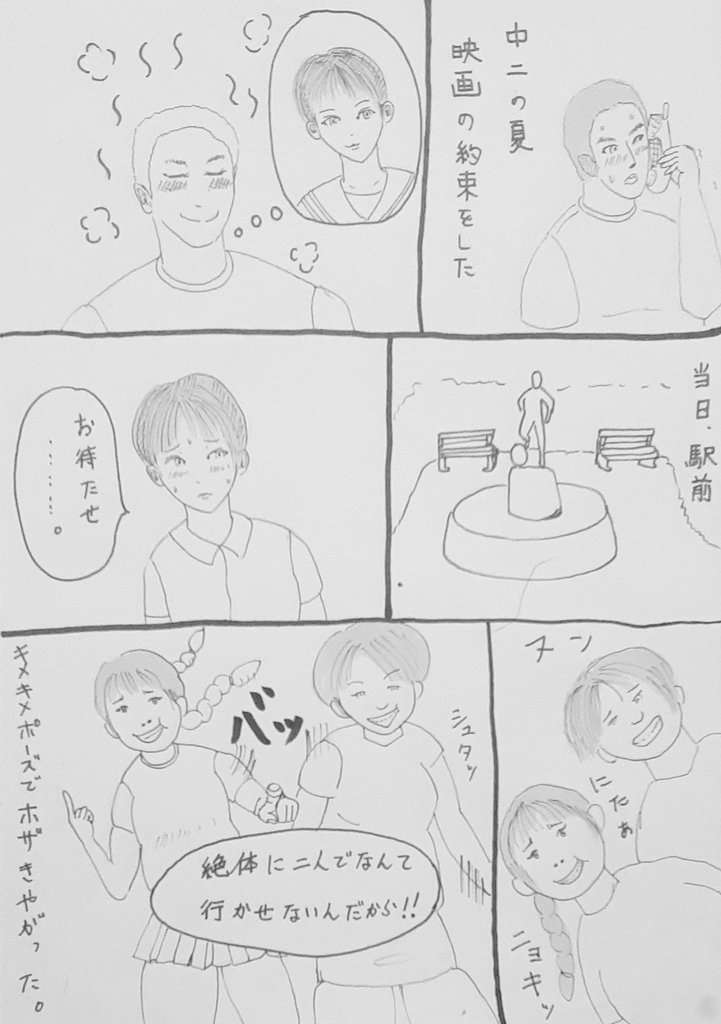 中二の夏
映画の約束をした
当日、駅前
お待たせ
………。
ヌン
にたぁ
ニョキッ
バッ
シュタッ
絶体に二人でなんて
行かせないんだから!!
キメキメポーズでホザきやがった。